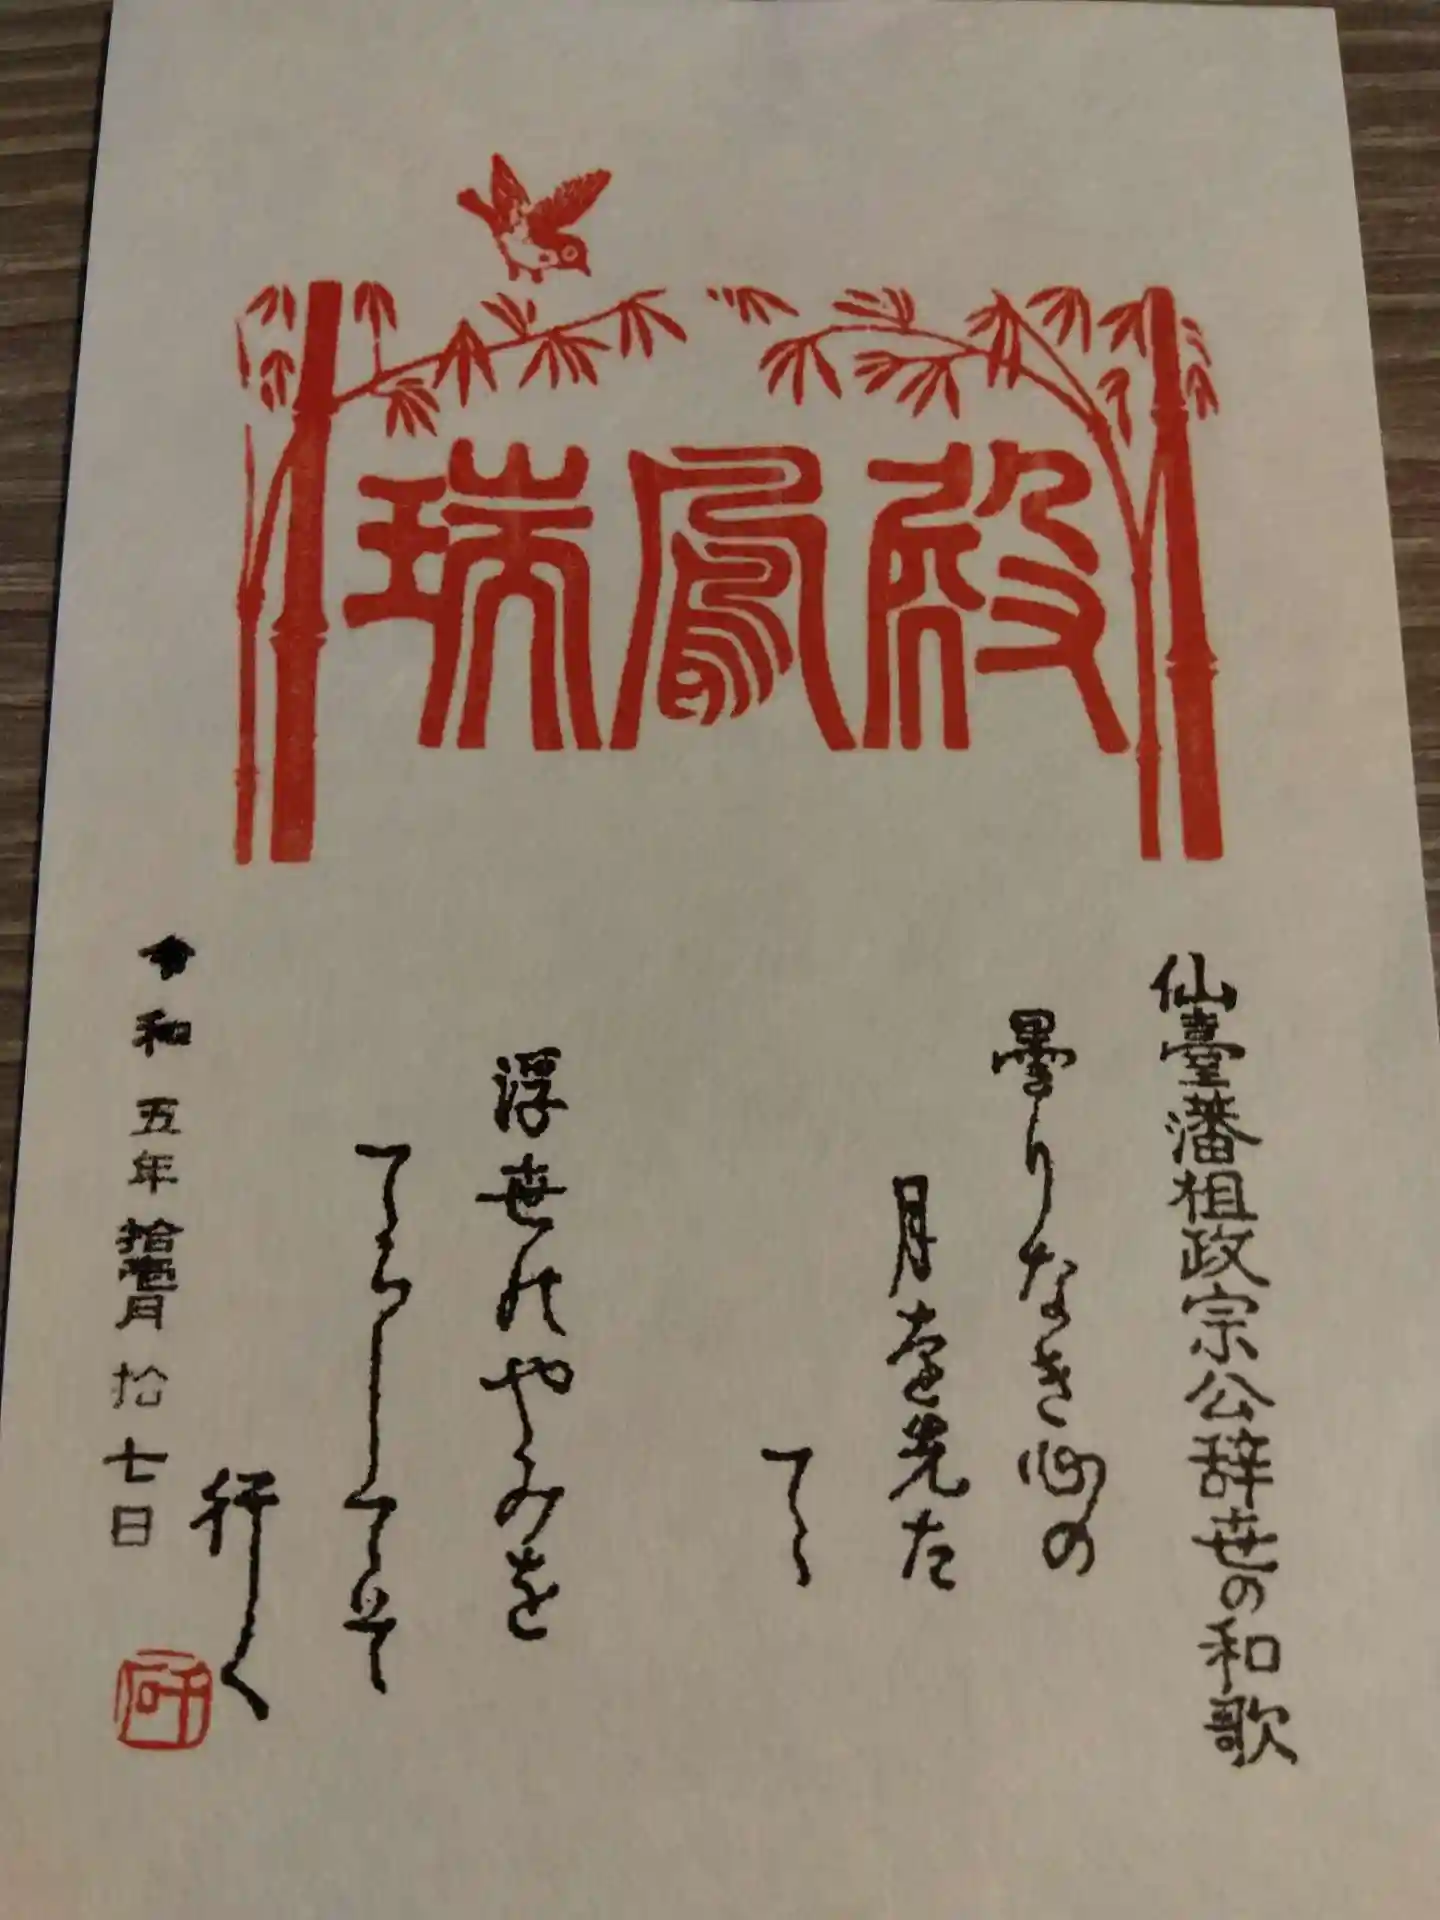 瑞鳳殿
仙臺藩祖政宗公辞世の和歌
曇りなき心の
月を先た
てゝ
浮世のやみを
てらしてそ
行く
令和五年拾壹月拾七日